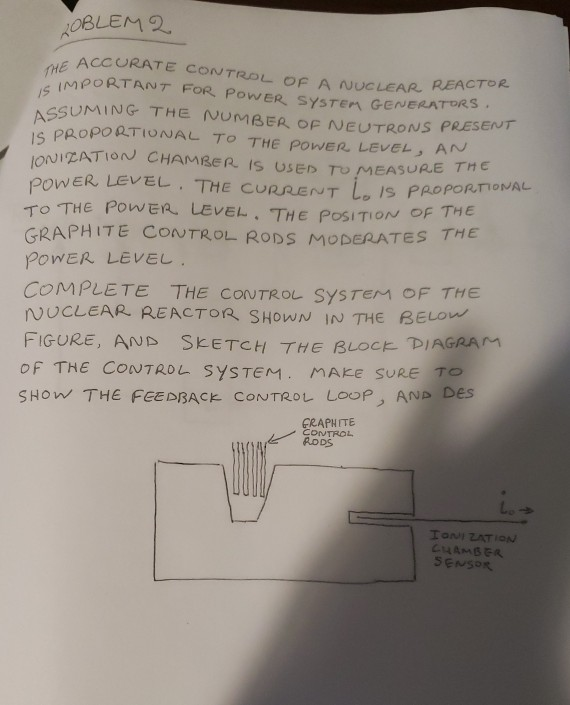 ROBLEM 2
THE ACCURATE CONTROL OF A NUCLEAR REACTOR
IS IMPORTANT FOR POWER SYSTEM GENERATORS.
ASSUMING THE NUMBER OF NEUTRONS PRESENT
IS PROPORTIONAL TO THE POWER LEVEL, AN
IONIZATION CHAMBER IS USED TO MEASURE THE
POWER LEVEL. THE CURRENT i₀ IS PROPORTIONAL
TO THE POWER LEVEL. THE POSITION OF THE
GRAPHITE CONTROL RODS MODERATES THE
POWER LEVEL.
COMPLETE THE CONTROL SYSTEM OF THE
NUCLEAR REACTOR SHOWN IN THE BELOW
FIGURE, AND SKETCH THE BLOCK DIAGRAM
OF THE CONTROL SYSTEM. MAKE SURE TO
SHOW THE FEEDBACK CONTROL LOOP, AND DES
GRAPHITE
CONTROL
RODS
i₀ →
IONIZATION
CHAMBER
SENSOR